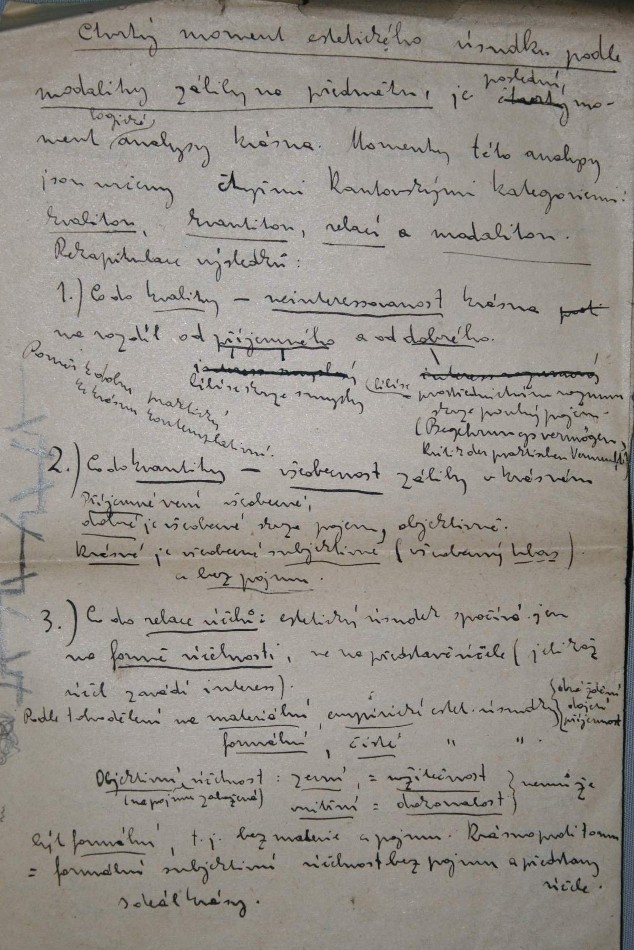 Čtvrtý moment estetického úsudku podle
modality záliby na předmětu, je poslední, mo-
ment logické analysy krásna. Momenty této analysy
jsou určeny čtyřmi Kantovskými kategoriemi:
kvalitou, kvantitou, relací a modalitou.
Rekapitulace výsledků:
1.) Co do kvality – neinteresovanost krásna
na rozdíl od příjemného a od dobrého.
líbí se skrze smysly
(líbí se prostřednictvím rozumu
skrze pouhý pojem –
(Begehrungsvermögen,
Kritik der praktischen Vernunft)
Poměr k dobru praktický
ke krásnu kontemplativní.
2.) Co do kvantity – všeobecnost záliby v krásném
Příjemné není všeobecné,
dobré je všeobecné skrze pojem, objektivně.
Krásné je všeobecné subjektivně (všeobecný hlas)
a bez pojmu.
3.) Co do relace účelů: estetický úsudek spočívá jen
na formě účelnosti, ne na představě účele (jelikož
účel zavádí interess).
Podle toho dělení na materiální, empirické estet. úsudky {obraždění dojetí příjemnost
formální, čisté " " .
Objektivní účelnost: zevní, = užitečnost } nemůže
(na pojmu založená) vnitřní = dokonalost
být formální, t.j. bez materie a pojmu. Krásno proti tomu
= formální subjektivní účelnost bez pojmu a představy
účele.
Ideál krásy.